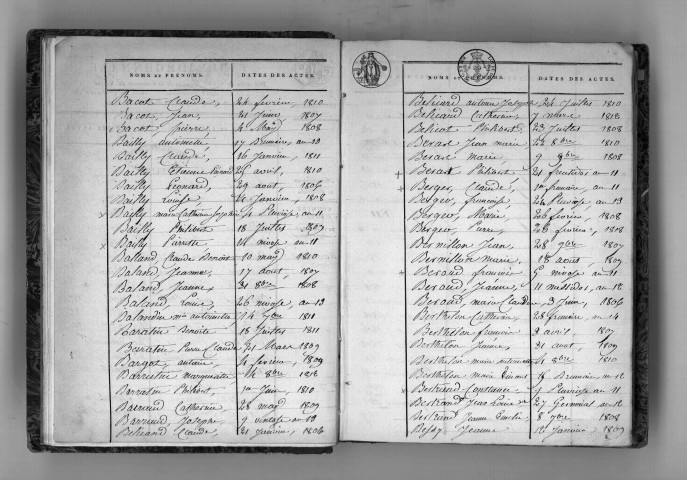 NOMS ET PRÉNOMS. DATES DES ACTES.
Bacot Claude, 24 fevrier, 1810
Bacot Jean, 21 Juin, 1807
Bacot pierre, 4 May, 1808
Bailly antoinette, 17 Brumaire, an 13
Bailly Claude, 16 Janvier, 1811
Bailly Etienne 26 avril, 1810
Bailly Léonard, 29 aout, 1806
Bailly Louise, Janvier, 1808
Bailly marie Catherine 4 Pluviose, an 11
Bailly Philibert 18 Juillet, 1807
Bailly Pierrette, nivose an 11
Balland Claude Benoist 10 may, 1810
Baland Jeanne, 17 aout, 1807
Baland Jeanne, 31 8bre, 1808
Baland, Louise, 26 nivose, an 13
Balandin antoinette 14 9bre, 1811
Baratin Benoite, 18 Juillet, 1811
Baratin Pierre Claude, 21 Mars 1809
Bargot, antoine, 4 fevrier, 1809
Barristier marguerite, 14 8bre, 1812
Barratin Philibert, 1er Juin, 1810
Barraud Catherine 28 may, 1807
Barraud, Joseph, 9 ventose an 13
Beliand Claude, 21 Janvier, 1806
NOMS ET PRÉNOMS. DATES DES ACTES.
Beliard antoine Joseph 24 Juillet, 1810
Beliand Catherine, 7 1812
Belicot Philibert, 23 Juillet, 1808
Berard Jean marie, 22 8bre, 1810
Berard marie, 9 9bre, 1808
Berard Philibert, 21 fructidor, an 11
Berger, Claude, 1er frimaire, an 11
Berger, francoise, Pluviose, an 13
Berger, Marie, 26 fevrier, 1808
Berger Pierre, 28 fevrier, 1812
Bermillon Jean, 28 9bre, 1807
Bermillon marie, 18 aout, 1807
Beraud francoise, 5 nivose an 11
Beraud, Jeanne, 11 messidor, an 12
Beraud, marie Claudine, 3 Juin, 1806
Berthelon Catherine, 28 frimaire, an 14
Berthelon francois, 3 avril, 1807
Berthelon Jeanne, 21 aout, 1809
Berthelon marie antoinette, 4 8bre, 1810
Berthelon marie 18 Brumaire, an 12
Bertrand Constance, 4 Pluviose, an 11
Bertrand Jean Louis 27 Germinal, an 12
Bertrand Jeanne 8 9bre, 1808
Bessy Jeanne, 12 Janvier, 1809